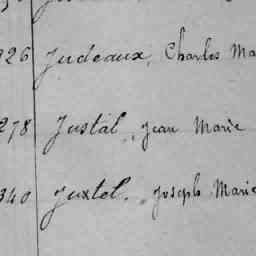 26 Judeaux, Charles Ma
278 Justal, Jean Marie
340 Juxtel, Joseph Marie